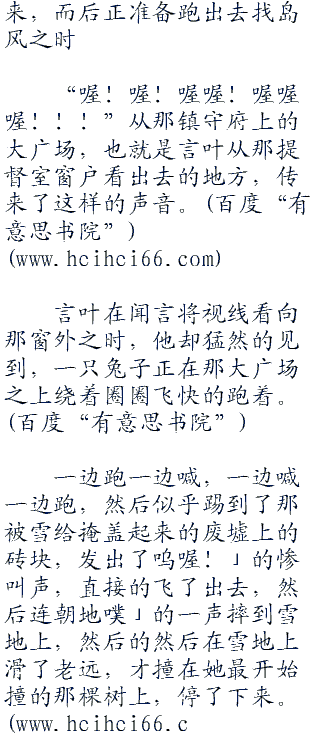 来，而后正准备跑出去找岛
风之时
“喔！喔！喔喔！喔喔
喔！！！”从那镇守府上的
大广场，也就是言叶从那提
督室窗户看出去的地方，传
来了这样的声音。(百度“有
意思书院”)
(www.hcihci66.com)
言叶在闻言将视线看向
那窗外之时，他却猛然的见
到，一只兔子正在那大广场
之上绕着圈圈飞快的跑着。
(百度“有意思书院”)
一边跑一边喊，一边喊
一边跑，然后似乎踢到了那
被雪给掩盖起来的废墟上的
砖块，发出了呜喔！」的惨
叫声，直接的飞了出去，然
后连朝地噗」的一声摔到雪
地上，然后的然后在雪地上
滑了老远，才撞在她最开始
撞的那棵树上，停了下来。
(www.hcihci66.c